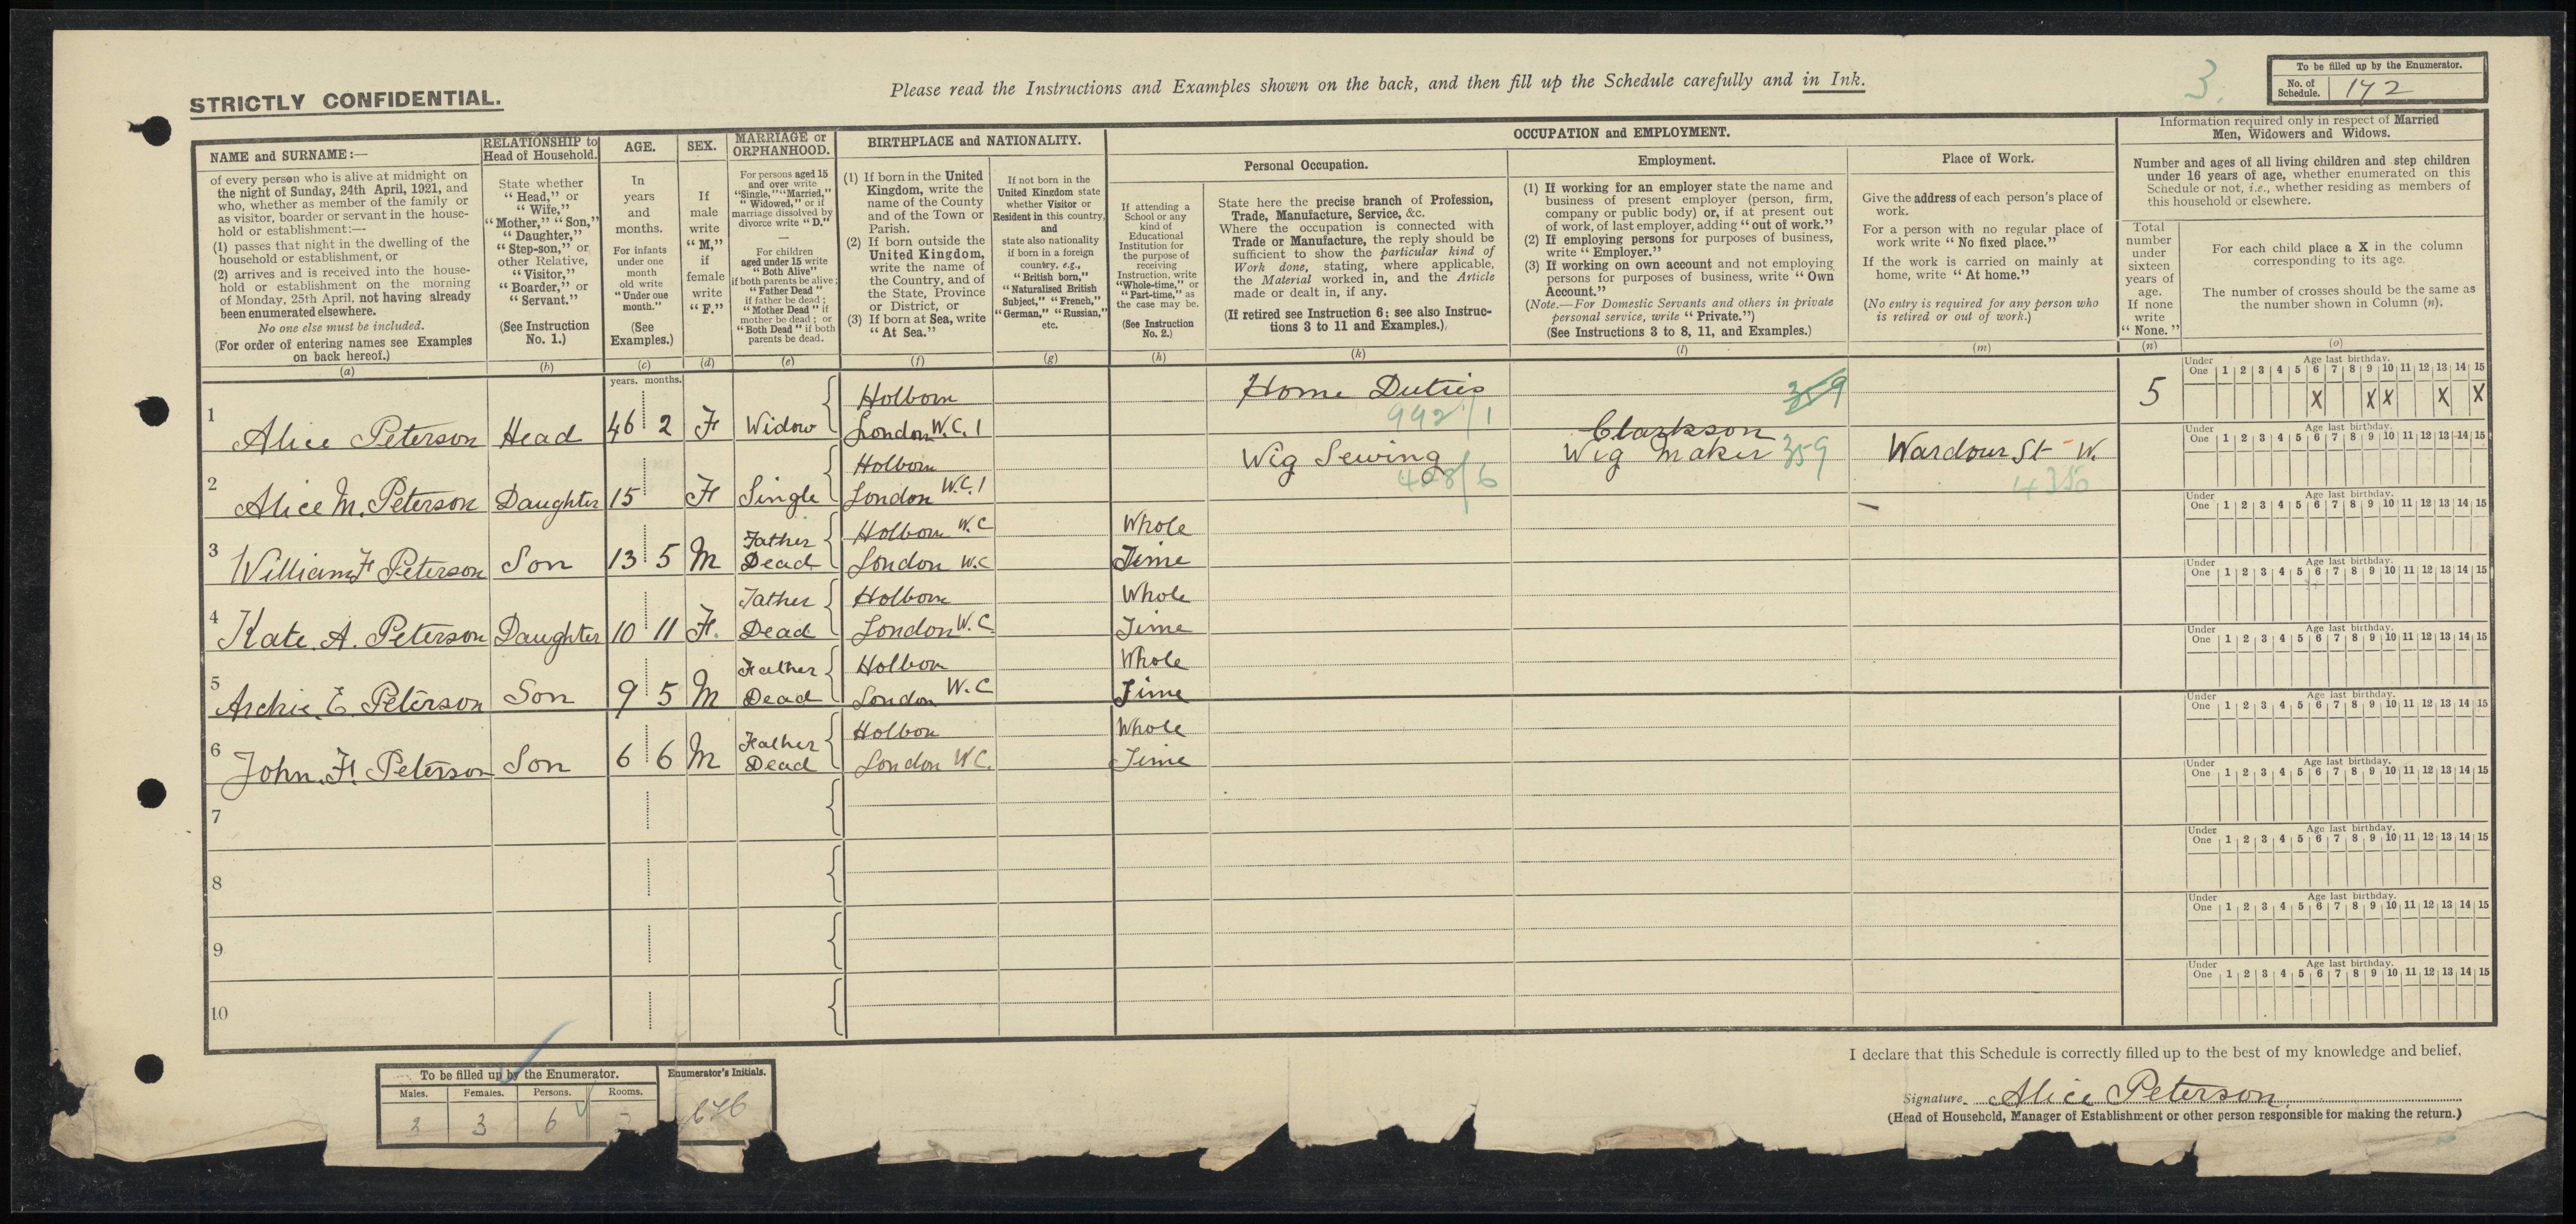 STRICTLY CONFIDENTIAL.
Please read the Instructions and Examples shown on the back, and then fill up the Schedule carefully and in Ink.
3.
To be filled up by the Enumerator.
No. of Schedule. 172
NAME and SURNAME:—
of every person who is alive at midnight on
the night of Sunday, 24th April, 1921, and
who, whether as member of the family or
as visitor, boarder or servant in the house-
hold or establishment:—
(1) passes that night in the dwelling of the
household or establishment, or
(2) arrives and is received into the house-
hold or establishment on the morning
of Monday, 25th April, not having already
been enumerated elsewhere.
No one else must be included.
(For order of entering names see Examples
on back hereof.)
(a)
RELATIONSHIP to
Head of Household.
State whether
"Head," or
"Wife,"
"Mother," "Son,"
"Daughter,"
"Step-son," or
other Relative,
"Visitor,"
"Boarder," or
"Servant."
(See Instruction
No. 1.)
(b)
AGE.
In
years
and
months.
For infants
under one
month
old write
"Under one
month."
(See
Examples.)
(c)
SEX.
If
male
write
"M,"
if
female
write
"F."
(d)
MARRIAGE or
ORPHANHOOD.
For persons aged 15
and over write
"Single," "Married,"
"Widowed," or if
marriage dissolved by
divorce write "D."
—
For children
aged under 15 write
"Both Alive"
if both parents be alive;
"Father Dead"
if father be dead;
"Mother Dead" if
mother be dead; or
"Both Dead" if both
parents be dead.
(e)
BIRTHPLACE and NATIONALITY.
(1) If born in the United
Kingdom, write the
name of the County
and of the Town or
Parish.
(2) If born outside the
United Kingdom,
write the name of
the Country, and of
the State, Province
or District, or
(3) If born at Sea, write
"At Sea."
(f)
If not born in the
United Kingdom state
whether Visitor or
Resident in this country,
and
state also nationality
if born in a foreign
country, e.g.,
"British born,"
"Naturalised British
Subject," "French,"
"German," "Russian,"
etc.
(g)
OCCUPATION and EMPLOYMENT.
If attending a
School or any
kind of
Educational
Institution for
the purpose of
receiving
Instruction, write
"Whole-time," or
"Part-time," as
the case may be.
(See Instruction
No. 2.)
(h)
Personal Occupation.
State here the precise branch of Profession,
Trade, Manufacture, Service, &c.
Where the occupation is connected with
Trade or Manufacture, the reply should be
sufficient to show the particular kind of
Work done, stating, where applicable,
the Material worked in, and the Article
made or dealt in, if any.
(If retired see Instruction 6; see also Instruc-
tions 3 to 11 and Examples.)
(k)
Employment.
(1) If working for an employer state the name and
business of present employer (person, firm,
company or public body) or, if at present out
of work, of last employer, adding "out of work."
(2) If employing persons for purposes of business,
write "Employer."
(3) If working on own account and not employing
persons for purposes of business, write "Own
Account."
(Note.—For Domestic Servants and others in private
personal service, write "Private.")
(See Instructions 3 to 8, 11, and Examples.)
(l)
Place of Work.
Give the address of each person's place of
work.
For a person with no regular place of
work write "No fixed place."
If the work is carried on mainly at
home, write "At home."
(No entry is required for any person who
is retired or out of work.)
(m)
Information required only in respect of Married
Men, Widowers and Widows.
Number and ages of all living children and step children
under 16 years of age, whether enumerated on this
Schedule or not, i.e., whether residing as members of
this household or elsewhere.
Total
number
under
sixteen
years of
age.
If none
write
"None."
(n)
For each child place a X in the column
corresponding to its age.
The number of crosses should be the same as
the number shown in Column (n).
(o)
years. months.
Under One Age last birthday. 1 2 3 4 5 6 7 8 9 10 11 12 13 14 15
1 Alice Peterson Head 46 2 F Widow Holborn London W.C.1 Home Duties 992/1 359 5 X X X X X
Under One Age last birthday. 1 2 3 4 5 6 7 8 9 10 11 12 13 14 15
2 Alice M. Peterson Daughter 15 F Single Holborn London W.C.1 Wig Sewing 408/6 Clarkson Wig Maker 359 Wardour St - W. 4350
Under One Age last birthday. 1 2 3 4 5 6 7 8 9 10 11 12 13 14 15
3 William F Peterson Son 13 5 M Father Dead Holborn W.C London W.C Whole Time
Under One Age last birthday. 1 2 3 4 5 6 7 8 9 10 11 12 13 14 15
4 Kate. A. Peterson Daughter 10 11 F. Father Dead Holborn London W.C. Whole Time
Under One Age last birthday. 1 2 3 4 5 6 7 8 9 10 11 12 13 14 15
5 Archie. E. Peterson Son 9 5 M Father Dead Holborn London W.C Whole Time
Under One Age last birthday. 1 2 3 4 5 6 7 8 9 10 11 12 13 14 15
6 John. F. Peterson Son 6 6 M Father Dead Holbon London W.C. Whole Time
Under One Age last birthday. 1 2 3 4 5 6 7 8 9 10 11 12 13 14 15
7
Under One Age last birthday. 1 2 3 4 5 6 7 8 9 10 11 12 13 14 15
8
Under One Age last birthday. 1 2 3 4 5 6 7 8 9 10 11 12 13 14 15
9
Under One Age last birthday. 1 2 3 4 5 6 7 8 9 10 11 12 13 14 15
10
I declare that this Schedule is correctly filled up to the best of my knowledge and belief,
Signature. Alice Peterson.
(Head of Household, Manager of Establishment or other person responsible for making the return.)
To be filled up by the Enumerator.
Males. Females. Persons. Rooms.
3 3 6
Enumerator's Initials.